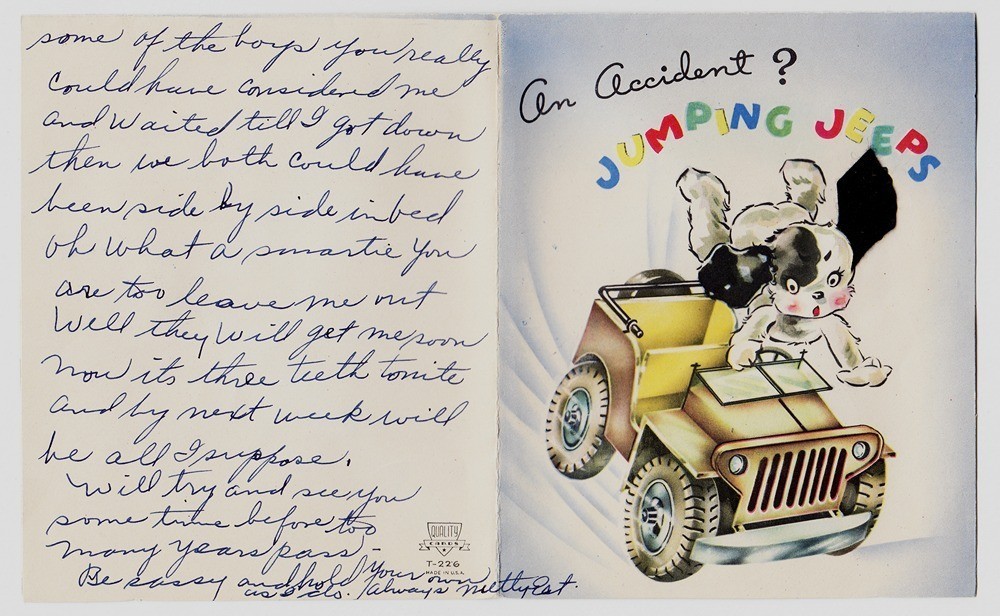 some of the boys you really
could have considered me
and waited till I got down
then we both could have
been side by side in bed
oh what a smartie you
are too leave me out
Well they will get me soon
now its three teeth tonite
and by next week will
be all I suppose.
Will try and see you
some time before too
many years pass -
Be sassy and hold your own
as I do. Always
QUALITY
CARDS
T-226
MADE IN U.S.A.
An Accident ?
JUMPING JEEPS